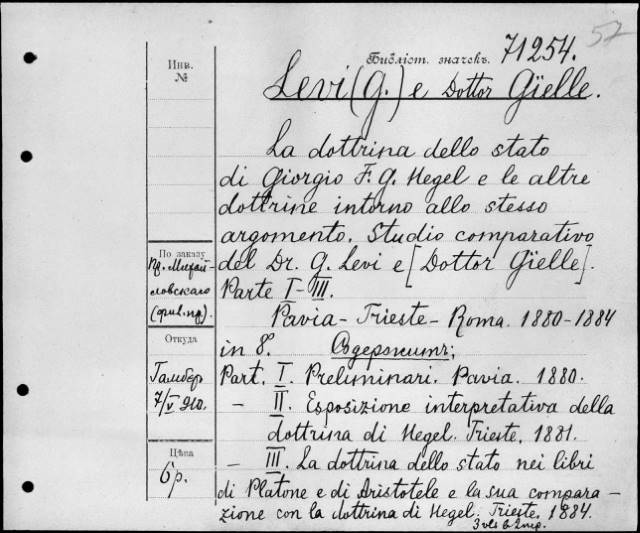 52
Библіот. значекъ. 71254.
Инв.
№
Levi (G.) e Dottor Gïelle.
La dottrina dello stato
di Giorgio F. G. Hegel e le altre
dottrine intorno allo stesso
argomento. Studio comparativo
По заказу
пр. Михай-
ловскаго
del Dr. G. Levi e [Dottor Gïelle].
Parte I-III.
Pavia - Trieste - Roma. 1880-1884
Откуда
in 8. Содержитъ:
Гамбер
7/V 910.
Part. I. Preliminari. Pavia. 1880.
— II. Esposizione interpretativa della
dottrina di Hegel. Trieste, 1881.
Цѣна
6 р.
— III. La dottrina dello stato nei libri
di Platone e di Aristotele e la sua compara-
zione con la dottrina di Hegel. Trieste, 1884.
3 vls в 2 пер.